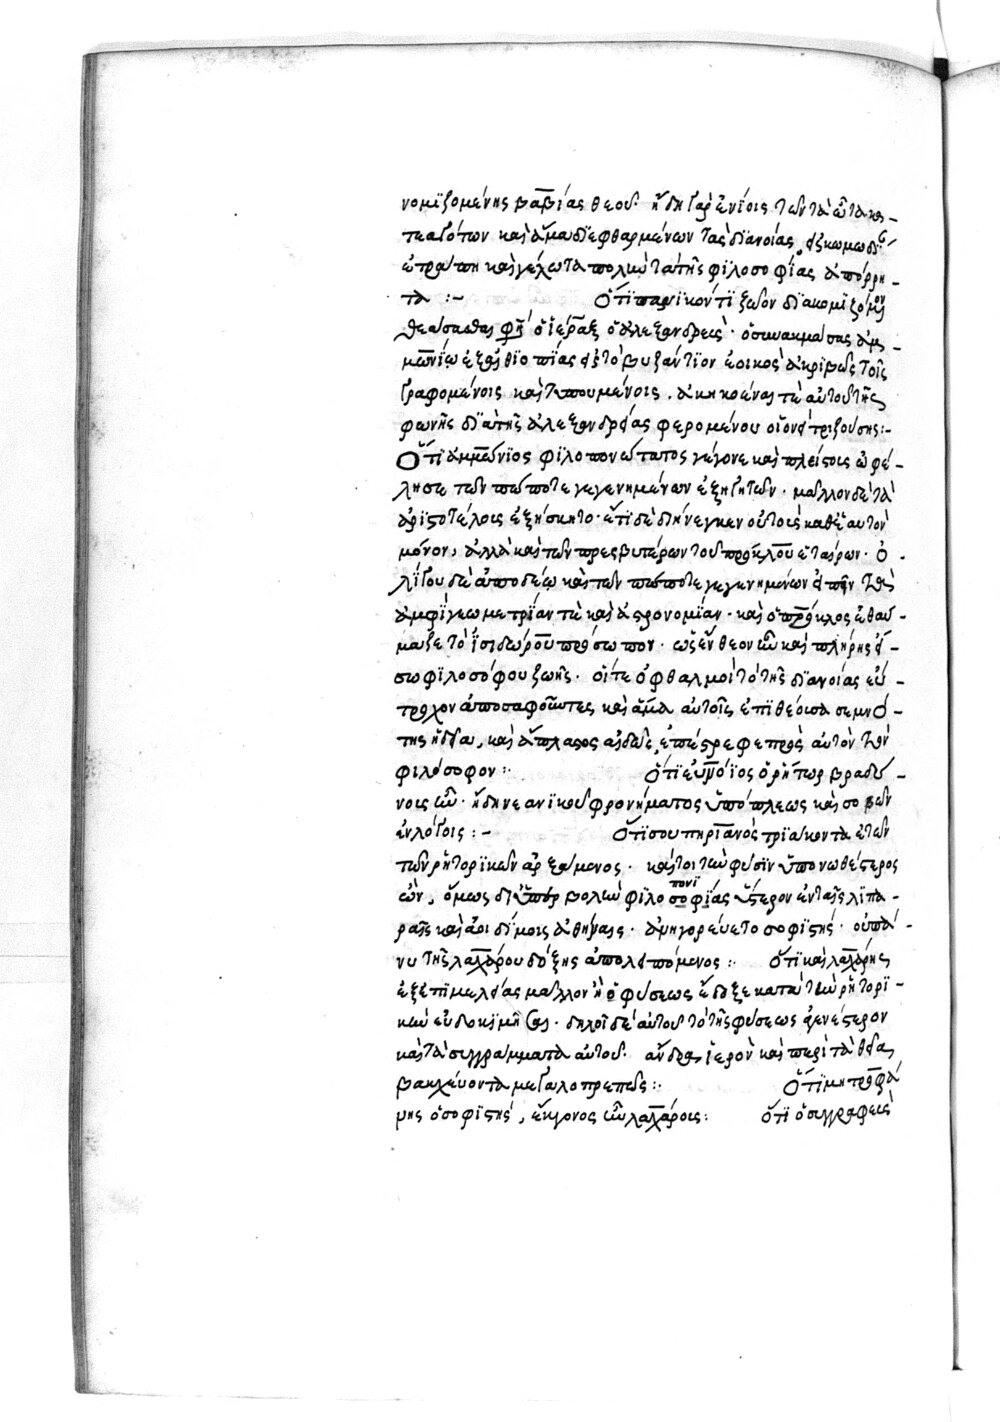 νομιζομένης βαβίας θεοῦ. ἤδη γὰρ ἐνίοις τῶν τὰ ὦτα κα_
τεαγότων καὶ ἅμα διεφθαρμένων τὰς διανοίας, ἐξεκωμωδή
ἐτράπη καὶ γέλωτα πολὺν τὰ τῆς φιλοσοφίας ἀπόρρη_
τα :- Ὅτι πανικόν τι ζῶον διακομιζόμενον
θεάσασθαι φησὶ ὁ ἱέραξ ὁ ἀλεξανδρεὺς. ὁ συνακμάσας ἀμ_
μωνίω ἐξ αἰθιοπίας ἐς τὸ βυζάντιον ἐοικὸς ἀκριβῶς τοῖς
γραφομένοις καὶ τυπουμένοις. ἀκηκοέναι τὲ αὐτοῦ τῆς
φωνῆς διὰ τῆς ἀλεξανδρείας φερομένου οἷον εἰ τριζούσης:-
Ὅτι ἀμμώνιος φιλοπονώτατος γέγονε καὶ πλείστοις ὠφέ_
λησε τῶν πώποτε γεγενημένων ἐξηγητῶν. μᾶλλον δὲ τὰ
ἀριστοτέλους ἐξήσκητο. ἔτι δὲ διήνεγκεν οὐ τοὺς καθ' ἑαυτὸν
μόνον, ἀλλὰ καὶ τῶν πρεσβυτέρων τοῦ πρόκλου ἑταίρων. ὀ_
λίγου δὲ ἀποδέω καὶ τῶν πώποτε γεγενημένων εἰπεῖν τὰ
ἀμφὶ γεωμετρίαν τὲ καὶ ἀστρονομίαν. καὶ ὁ πρόκλος ἐθαύ_
μαζε τὸ ἰσιδώρου πρόσωπον. ὡς ἔνθεον ὂν καὶ πλήρης εἴ_
σω φιλοσόφου ζωῆς. οἵ τε ὀφθαλμοὶ τὸ τῆς διανοίας εὔ_
τροχον ἀποσαφοῦντες, καὶ ἅμα αὐτοῖς ἐπιθέουσα σεμνό_
της ἡδεῖα, καὶ ἄπλαστος αἰδὼς, ἐπέστρεφε πρὸς αὐτὸν τὸν
φιλόσοφον :- Ὅτι εὐμοίος ὁ ῥήτωρ βραδύ_
νους ὢν. ἤδη νεανικοῦ φρονήματος ὑπόπλεως καὶ σοβῶν
ἐν λόγοις :- Ὅτι σουπηριανὸς τριάκοντα ἐτῶν
τῶν ῥητορικῶν ἀρξάμενος. καίτοι τὴν φύσιν ὑπονωθέστερος
ὢν, ὅμως δι' ὑπερβολὴν φιλοπονίσοφίας ὕστερον ἐν ταῖς λιπα_
ραῖς καὶ ἀοιδίμοις ἀθήναις. ἀνηγορεύετο σοφιστής. οὐ πά_
νυ τῆς λαχάρου δόξης ἀπολειπόμενος :- Ὅτι καὶ λαχάρης
ἐξ ἐπιμελείας μᾶλλον ἢ ὁ φύσεως ἔδοξε κατὰ τὴν ῥητορι_
κὴν εὐδοκιμῆσαι. δηλοῖ δὲ αὐτοῦ τὸ τῆς φύσεως ἀγενέστερον
καὶ τὰ συγγράμματα αὐτοῦ. ἄνδρα ἱερὸν καὶ περὶ τὰ θεῖα,
βακχεύοντα μεγαλοπρεπῶς :- Ὅτι μητροφά
νης ὁ σοφιστὴς, ἔκγονος ὢν λαχάρους : ὅτι ὁ συγγραφεὺς